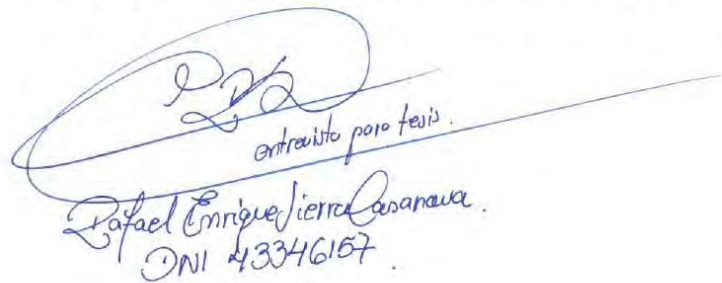 entrevista para tesis.
Rafael Enrique Sierra Casanova.
DNI 43346157.